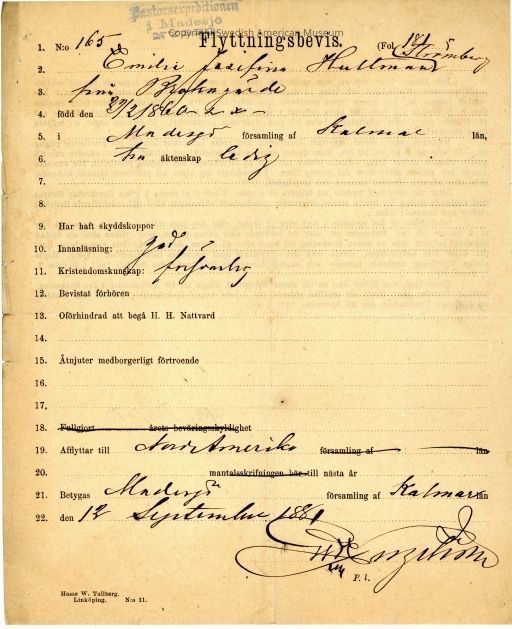 Pastorsexpeditionen
i Madesjö
Copyright Swedish American Museum
Flyttningsbevis.
1. N:o 165 (Fol 181
2. Emilie Josefina Hultman Strömberg
3. från
4. född den 29/2 1860
5. i Madesjö församling af Kalmar län,
6. till äktenskap ledig
7.
8.
9. Har haft skyddskoppor
10. Innanläsning: god
11. Kristendomskunskap: försvarlig
12. Bevistat förhören
13. Oförhindrad att begå H. H. Nattvard
14.
15. Åtnjuter medborgerligt förtroende
16.
17.
18. Fullgjort årets beväringsskyldighet
19. Afflyttar till Nord Amerika församling af län
20. mantalsskrifningen här till nästa år
21. Betygas Madesjö församling af Kalmar län
22. den 12 September 1881
P. l.
Hasse W. Tullberg.
Linköping. N:o 11.